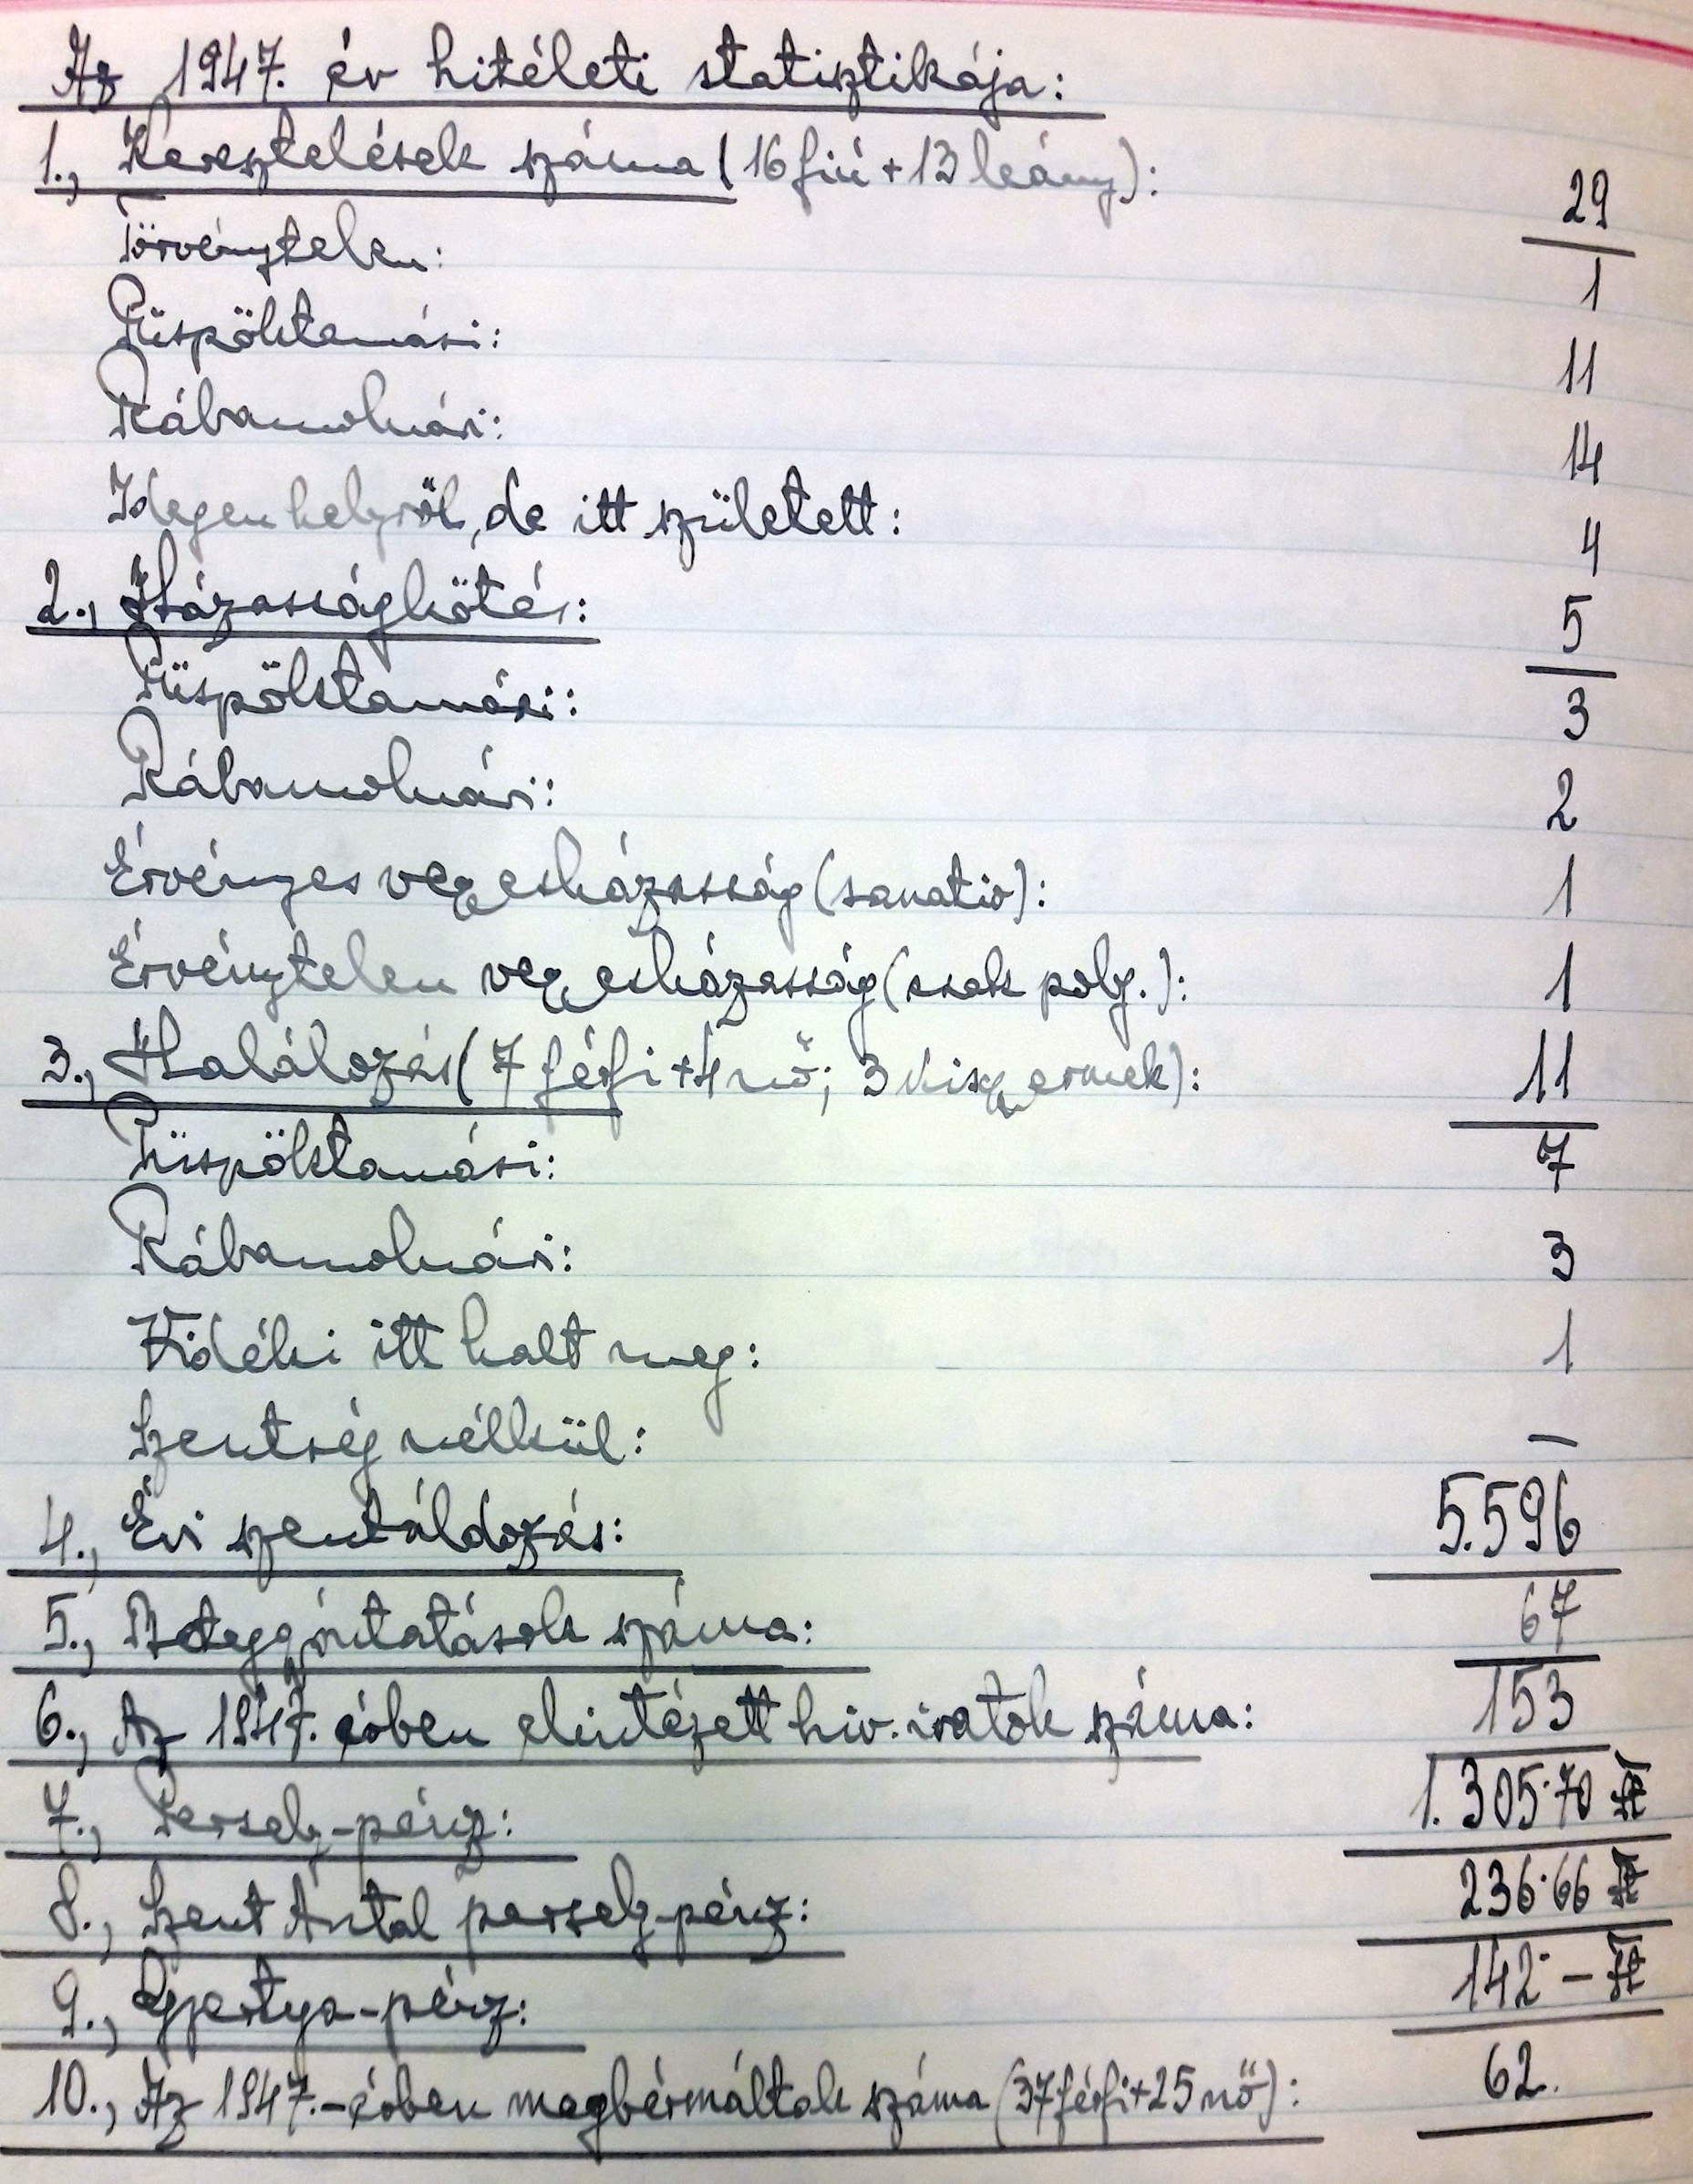 Az 1947. év hitéleti statisztikája:
1., Keresztelések száma (16 fiú + 13 leány): 29
Törvénytelen: 1
Püspöktamási: 11
Rábamolnári: 14
Idegen helyről, de itt született: 4
2., Házasságkötés: 5
Püspöktamási: 3
Rábamolnári: 2
Érvényes vegyesházasság (sanatio): 1
Érvénytelen vegyesházasság (csak polg.): 1
3., Halálozás (7 férfi + 4 nő; 3 kisgyermek): 11
Püspöktamási: 7
Rábamolnári: 3
Vidéki itt halt meg: 1
Szentség nélkül: —
4., Évi szentáldozás: 5.596
5., Beteggyóntatások száma: 67
6., Az 1947. évben elintézett hiv. iratok száma: 153
7., Persely-pénz: 1.305·70 Ft
8., Szent Antal persely-pénz: 236·66 Ft
9., Gyertya-pénz: 142·— Ft
10., Az 1947.-évben megbérmáltak száma (37 férfi + 25 nő): 62.